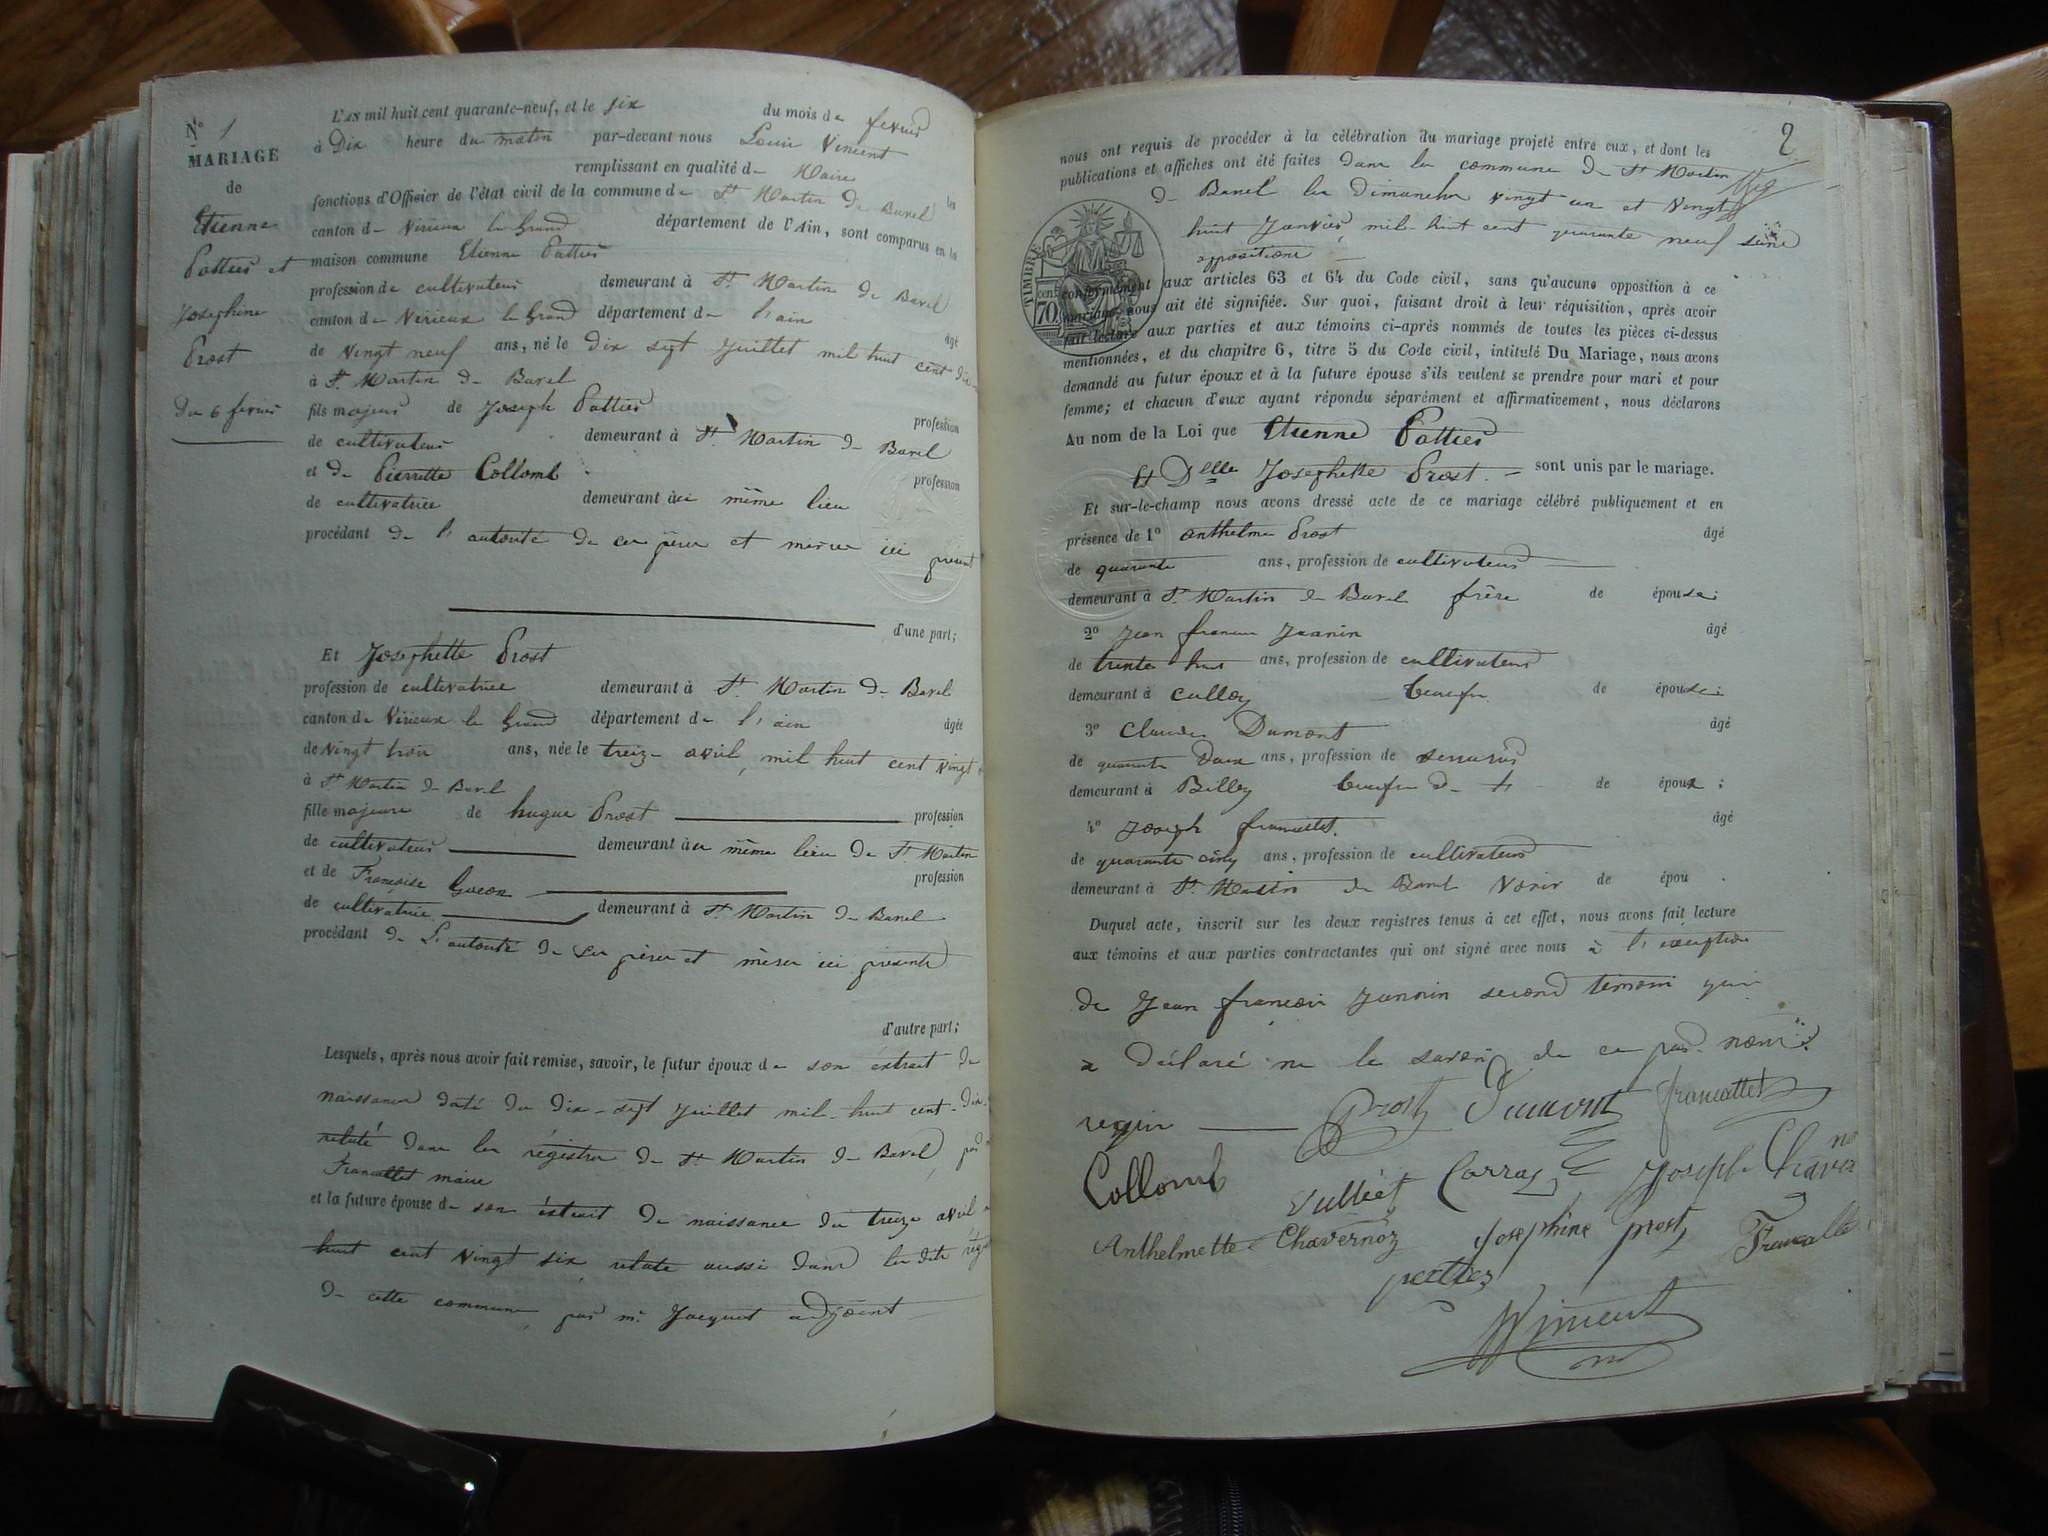 N° 1
MARIAGE
de
Etienne
Pottier et
Josephine
Prost
Du 6 fevrier
L'AN mil huit cent quarante-neuf, et le six du mois de fevrier
à Dix heure du matin par-devant nous Louis Vincent
remplissant en qualité de Maire les
fonctions d'Officier de l'état civil de la commune de St Martin de Bavel
canton de Virieux le Grand département de l'Ain, sont comparus en la
maison commune Etienne Pottier
profession de cultivateur demeurant à St Martin de Bavel
canton de Virieux le Grand département de l'ain âgé
de vingt neuf ans, né le dix sept Juillet mil huit cent dix
à St Martin de Bavel
fils majeur de Joseph Pottier profession
de cultivateur demeurant à St Martin de Bavel
et de Pierrette Collomb profession
de cultivatrice demeurant au même lieu
procédant de l'autorité de ses père et mère ici présent
d'une part;
Et Josephette Prost
profession de cultivatrice demeurant à St Martin de Bavel
canton de Virieux le Grand département de l'ain âgée
de vingt trois ans, née le treize avril, mil huit cent vingt
à St Martin de Bavel
fille majeure de hugue Prost profession
de cultivateur demeurant au même lieu de St Martin
et de Françoise profession
de cultivatrice demeurant à St Martin de Bavel
procédant de l'autorité de ses père et mère ici présents
d'autre part;
Lesquels, après nous avoir fait remise, savoir, le futur époux de son extrait de
naissance daté du dix-sept Juillet mil-huit cent-dix-
relaté dans les régistres de St Martin de Bavel, par
Francallet maire
et la future épouse de son éxtrait de naissance du treize avril
huit cent vingt six, relaté aussi dans les dits
de cette commune par mr Jacquet adjoint
2
nous ont requis de procéder à la célébration du mariage projeté entre eux, et dont les
publications et affiches ont été faites dans la commune de St Martin
de Bavel les Dimanches vingt un et vingt
huit Janvier, mil-huit cent quarante neuf sans
oppositions
TIMBRE
70 cent
conformément aux articles 63 et 64 du Code civil, sans qu'aucune opposition à ce
mariage nous ait été signifiée. Sur quoi, faisant droit à leur réquisition, après avoir
fait lecture aux parties et aux témoins ci-après nommés de toutes les pièces ci-dessus
mentionnées, et du chapitre 6, titre 5 du Code civil, intitulé Du Mariage, nous avons
demandé au futur époux et à la future épouse s'ils veulent se prendre pour mari et pour
femme; et chacun d'eux ayant répondu séparément et affirmativement, nous déclarons
Au nom de la Loi que Etienne Pottier
Et Delle Josephette Prost. sont unis par le mariage.
Et sur-le-champ nous avons dressé acte de ce mariage célébré publiquement et en
présence de 1° Anthelme Prost âgé
de quarante ans, profession de cultivateur
demeurant à St Martin de Bavel frère de épouse;
2° Jean françois Jeannin âgé
de trente huit ans, profession de cultivateur
demeurant à culloz de épouse;
3° Claude Dumont âgé
de quarante deux ans, profession de serrurier
demeurant à Billey de époux;
4° Joseph francallet. âgé
de quarante cinq ans, profession de cultivateur
demeurant à St Martin de Bavel Voisin de épou
Duquel acte, inscrit sur les deux registres tenus à cet effet, nous avons fait lecture
aux témoins et aux parties contractantes qui ont signé avec nous à l'exception
de Jean francois Jannin second témoin qui
a déclaré ne le savoir de ce par nous
requis Prost Dumont francallet
Collomb Vulliet Carraz Joseph Chaver
Anthelmette Chavernoz Josephine prost Francalle
pottier
Vincent